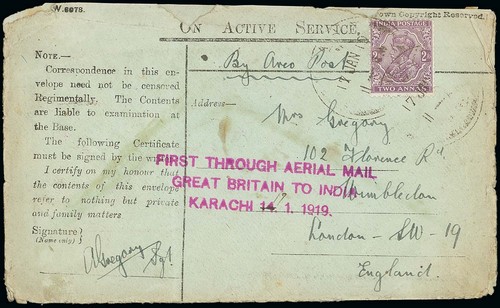 W.6078.
Crown Copyright Reserved.
ON ACTIVE SERVICE.
INDIA POSTAGE
2 2
TWO ANNAS
By Aero Post
NOTE.—
Correspondence in this en-
velope need not be censored
Regimentally. The Contents
are liable to examination at
the Base.
The following Certificate
must be signed by the
I certify on my honour that
the contents of this envelope
refer to nothing but private
and family matters
Signature
(Name only)
AGregory Sgt.
Address—
Mrs Gregory
102 Florence Rd
Wimbledon
London - SW - 19
England.
FIRST THROUGH AERIAL MAIL
GREAT BRITAIN TO INDIA
KARACHI 14 1. 1919.